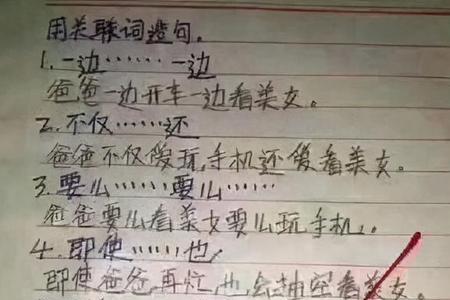 用关联词造句。
1.一边……一边
爸爸一边开车一边看美女。
2.不仅……还
爸爸不仅爱玩,手机还爱看美女。
3.要么……要么……
爸爸要么看美女要么玩手机。
4.即使……也,
即使爸爸,再忙,也,会抽空看美女。